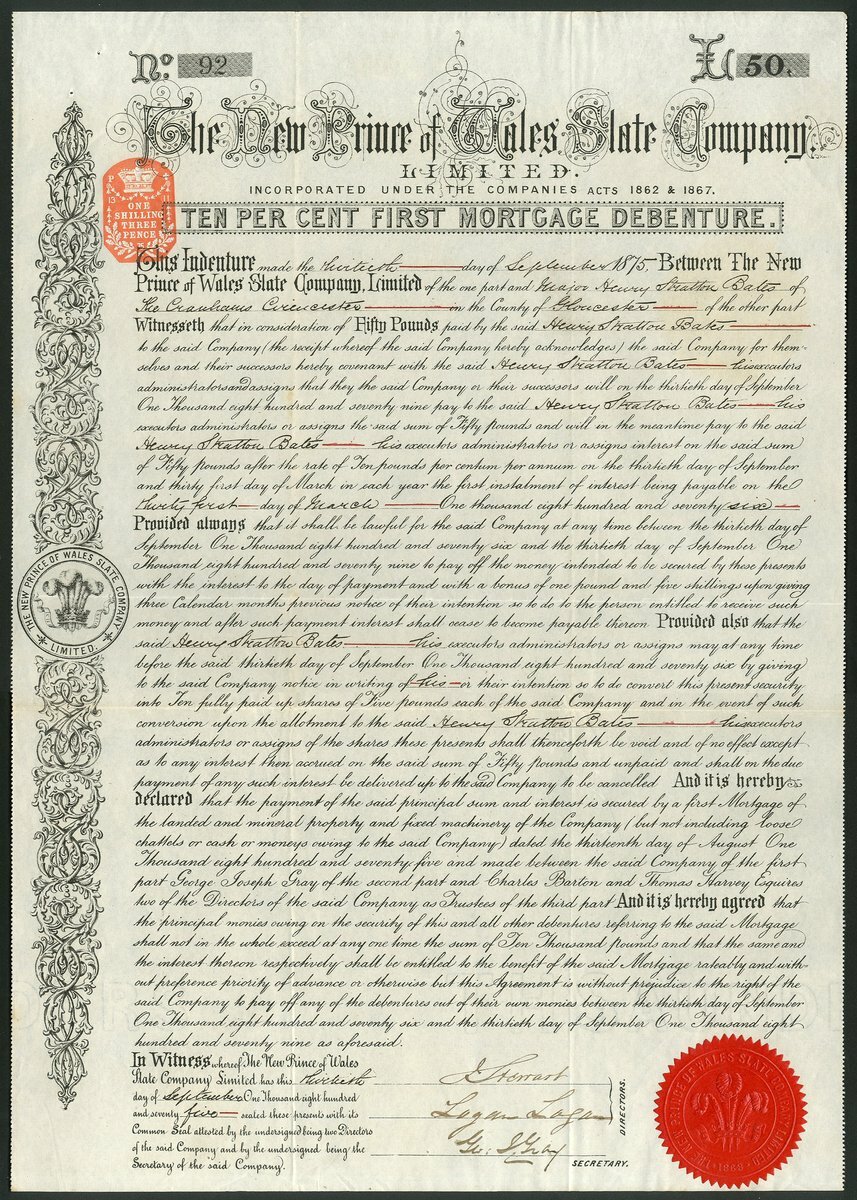 No. 92
£ 50.
The New Prince of Wales Slate Company.
LIMITED.
INCORPORATED UNDER THE COMPANIES ACTS 1862 & 1867.
ONE
SHILLING
THREE
PENCE
TEN PER CENT FIRST MORTGAGE DEBENTURE.
This Indenture made the thirtieth day of September 1875, Between The New
Prince of Wales Slate Company, Limited of the one part and Major Henry Stratton Bates of
The Cranhams Cirencester in the County of Gloucester of the other part
Witnesseth that in consideration of Fifty Pounds paid by the said Henry Stratton Bates
to the said Company (the receipt whereof the said Company hereby acknowledges) the said Company for them-
selves and their successors hereby covenant with the said Henry Stratton Bates his executors
administrators and assigns that they the said Company or their successors will on the thirtieth day of September
One Thousand eight hundred and seventy nine pay to the said Henry Stratton Bates his
executors administrators or assigns the said sum of Fifty pounds and will in the meantime pay to the said
Henry Stratton Bates his executors administrators or assigns interest on the said sum
of Fifty pounds after the rate of Ten pounds per centum per annum on the thirtieth day of September
and thirty first day of March in each year the first instalment of interest being payable on the
thirty first day of March One thousand eight hundred and seventy six
Provided always that it shall be lawful for the said Company at any time between the thirtieth day of
September One Thousand eight hundred and seventy six and the thirtieth day of September One
Thousand eight hundred and seventy nine to pay off the money intended to be secured by these presents
with the interest to the day of payment and with a bonus of one pound and five shillings upon giving
three Calendar months previous notice of their intention so to do to the person entitled to receive such
money and after such payment interest shall cease to become payable thereon Provided also that the
said Henry Stratton Bates his executors administrators or assigns may at any time
before the said thirtieth day of September One Thousand eight hundred and seventy six by giving
to the said Company notice in writing of his or their intention so to do convert this present security
into Ten fully paid up shares of Five pounds each of the said Company and in the event of such
conversion upon the allotment to the said Henry Stratton Bates his executors
administrators or assigns of the shares these presents shall thenceforth be void and of no effect except
as to any interest then accrued on the said sum of Fifty pounds and unpaid and shall on the due
payment of any such interest be delivered up to the said Company to be cancelled And it is hereby
declared that the payment of the said principal sum and interest is secured by a first Mortgage of
the landed and mineral property and fixed machinery of the Company (but not including loose
chattels or cash or moneys owing to the said Company) dated the thirteenth day of August One
Thousand eight hundred and seventy five and made between the said Company of the first
part George Joseph Gray of the second part and Charles Barton and Thomas Harvey Esquires
two of the Directors of the said Company as Trustees of the third part And it is hereby agreed that
the principal monies owing on the security of this and all other debentures referring to the said Mortgage
shall not in the whole exceed at any one time the sum of Ten Thousand pounds and that the same and
the interest thereon respectively shall be entitled to the benefit of the said Mortgage rateably and with-
out preference priority of advance or otherwise but this Agreement is without prejudice to the right of the
said Company to pay off any of the debentures out of their own monies between the thirtieth day of September
One Thousand eight hundred and seventy six and the thirtieth day of September One Thousand eight
hundred and seventy nine as aforesaid.
THE NEW PRINCE OF WALES SLATE COMPANY
LIMITED.
In Witness whereof The New Prince of Wales
Slate Company Limited has this thirtieth
day of September One Thousand eight hundred
and seventy five sealed these presents with its
Common Seal attested by the undersigned being two Directors
of the said Company and by the undersigned being the
Secretary of the said Company.
J Stewart
Logan Logan
DIRECTORS.
Geo. J. Gray
SECRETARY.